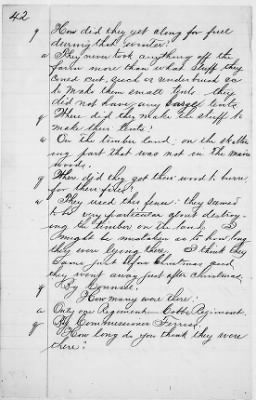 42
q How did they get along for fuel
during that winter?
a They never took anything off the
farm more than what stuff they
could cut, such as underbrush so
to make them small tents. they
did not have any large tents.
q Where did they make the stuff to
make their tents?
a On the timber land; on the
part that was not in the main
woods.
q Where did they get their wood to burn
for their fires?
a They used this fence; they seemed
to be very particular about destroy-
ing the timber on the land. I
might be mistaken as to how long
they were lying there. I think they
came just before Christmas and
they went away just after Christmas.
q By Counsel.
How many were there.
a Only one Regiment— Cobbs Regiment.
q By Commissioner Ferriss.
How long do you think they were
there?